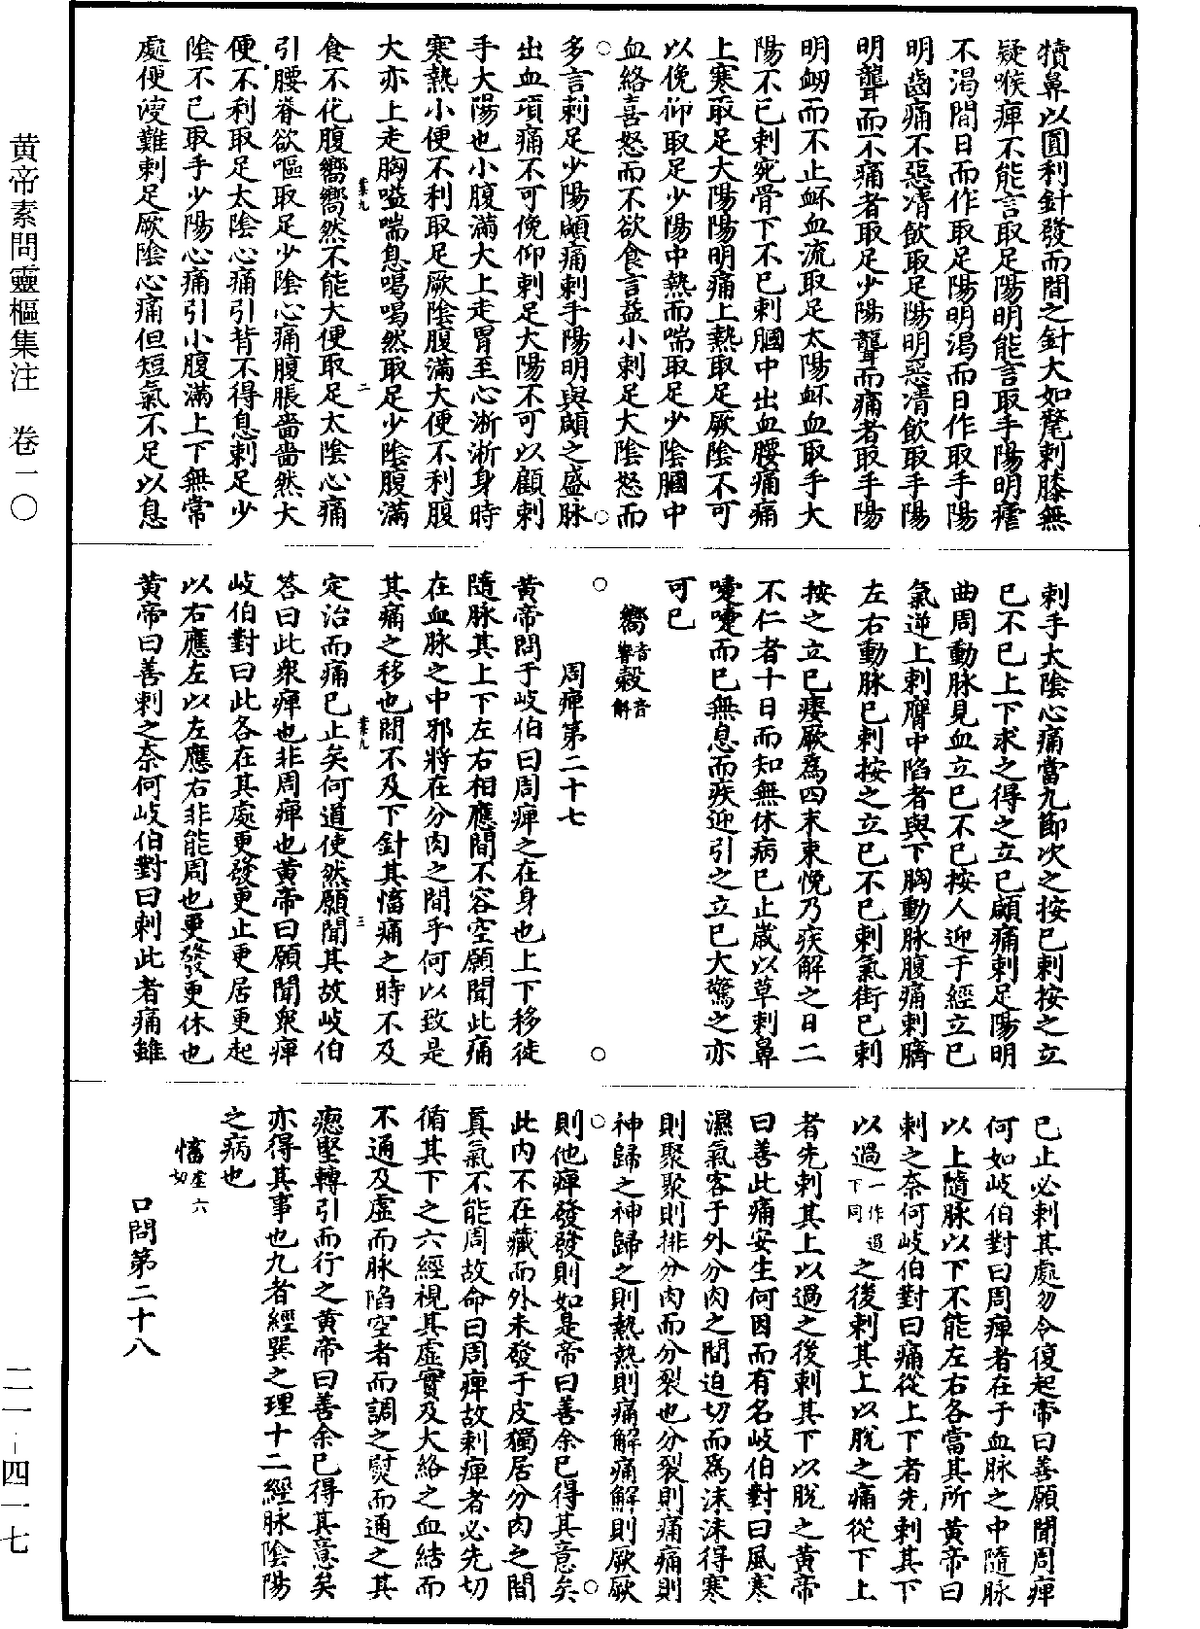 黃帝素問靈樞集注　卷一〇
二一－四一七
犢鼻以圓利針發而間之針大如氂刺膝無
疑喉痺不能言取足陽明能言取手陽明瘧
不渴間日而作取足陽明渴而日作取手陽
明齒痛不惡凊飲取足陽明惡凊飲取手陽
明聾而不痛者取足少陽聾而痛者取手陽
明衂而不止衃血流取足太陽衃血取手大
陽不已刺宛骨下不已刺膕中出血腰痛痛
上寒取足大陽陽明痛上熱取足厥陰不可
以俛仰取足少陽中熱而喘取足少陰膕中
血絡喜怒而不欲食言益小刺足大陰怒而
多言刺足少陽顑痛刺手陽明與顑之盛脉
出血項痛不可俛仰刺足大陽不可以顧刺
手大陽也小腹滿大上走胃至心淅淅身時
寒熱小便不利取足厥陰腹滿大便不利腹
大亦上走胸嗌喘息喝喝然取足少陰腹滿
食不化腹嚮嚮然不能大便取足太陰心痛
引腰脊欲嘔取足少陰心痛腹脹嗇嗇然大
便不利取足太陰心痛引背不得息刺足少
陰不已取手少陽心痛引小腹滿上下無常
處便溲難刺足厥陰心痛但短氣不足以息
刺手太陰心痛當九節次之按已刺按之立
已不已上下求之得之立已顑痛刺足陽明
曲周動脉見血立已不已按人迎于經立已
氣逆上刺膺中陷者與下胸動脉腹痛刺臍
左右動脉已刺按之立已不已刺氣街已刺
按之立已痿厥爲四末束悗乃疾解之日二
不仁者十日而知無休病已止歲以草刺鼻
嚏嚏而已無息而疾迎引之立已大驚之亦
可已
嚮音響穀音解
周痺第二十七
黃帝問于岐伯曰周痺之在身也上下移徙
隨脉其上下左右相應間不容空願聞此痛
在血脉之中邪將在分肉之間乎何以致是
其痛之移也間不及下針其慉痛之時不及
定治而痛已止矣何道使然願聞其故岐伯
答曰此衆痺也非周痺也黃帝曰願聞衆痺
岐伯對曰此各在其處更發更止更居更起
以右應左以左應右非能周也更發更休也
黃帝曰善刺之奈何岐伯對曰刺此者痛雖
已止必刺其處勿令復起帝曰善願聞周痺
何如岐伯對曰周痺者在于血脉之中隨脉
以上隨脉以下不能左右各當其所黃帝曰
刺之奈何岐伯對曰痛從上下者先刺其下
以過一作遏下同之後刺其上以脫之痛從下上
者先刺其上以過之後刺其下以脫之黃帝
曰善此痛安生何因而有名岐伯對曰風寒
濕氣客于外分肉之間迫切而爲沫沫得寒
則聚聚則排分肉而分裂也分裂則痛痛則
神歸之神歸之則熱熱則痛解痛解則厥厥
則他痺發發則如是帝曰善余已得其意矣
此内不在藏而外未發于皮獨居分肉之間
真氣不能周故命曰周痺故刺痺者必先切
循其下之六經視其虛實及大絡之血結而
不通及虛而脉陷空者而調之熨而通之其
瘛堅轉引而行之黃帝曰善余已得其意矣
亦得其事也九者經巽之理十二經脉陰陽
之病也
慉丑六切
口問第二十八